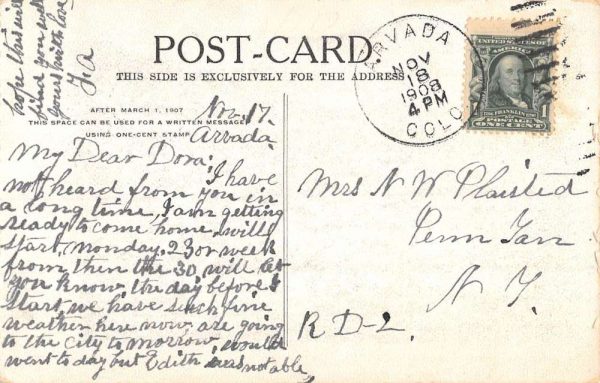 POST-CARD
THIS SIDE IS EXCLUSIVELY FOR THE ADDRESS
AFTER MARCH 1, 1907
THIS SPACE CAN BE USED FOR A WRITTEN MESSAGE
USING ONE-CENT STAMP
Nov. 17.
Arvada
My Dear Dora:
I have
not heard from you in
a long time, I am getting
ready to come home. will
start, monday. 23 or week
from then the 30, will let
you know the day before I
start, we have such fine
weather here now, are going
to the city to morrow, would
went to day but Edith was not able
hope this will
find you well
yours with love
ARVADA
NOV
18
1908
4 PM
COLO.
UNITED STATES OF
AMERICA
FRANKLIN
POSTAGE
ONE CENT
Mrs N W Plaisted
Penn Yan
N. Y.
RD-2.